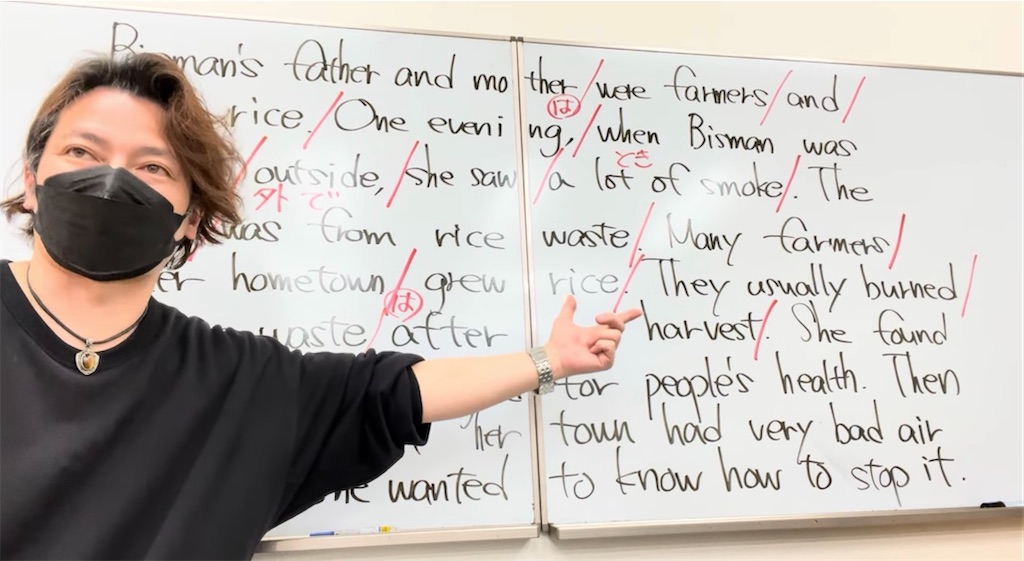 Bisman's father and mother / were farmers / and /
rice. / One evening, / when Bisman was
は
/ outside, / she saw / a lot of smoke / . The
外で とき
was from rice waste / . Many farmers /
hometown / grew rice. / They usually burned /
は
waste / after harvest / . She found
for people's health. Then
her town had very bad air
wanted to know how to stop it.